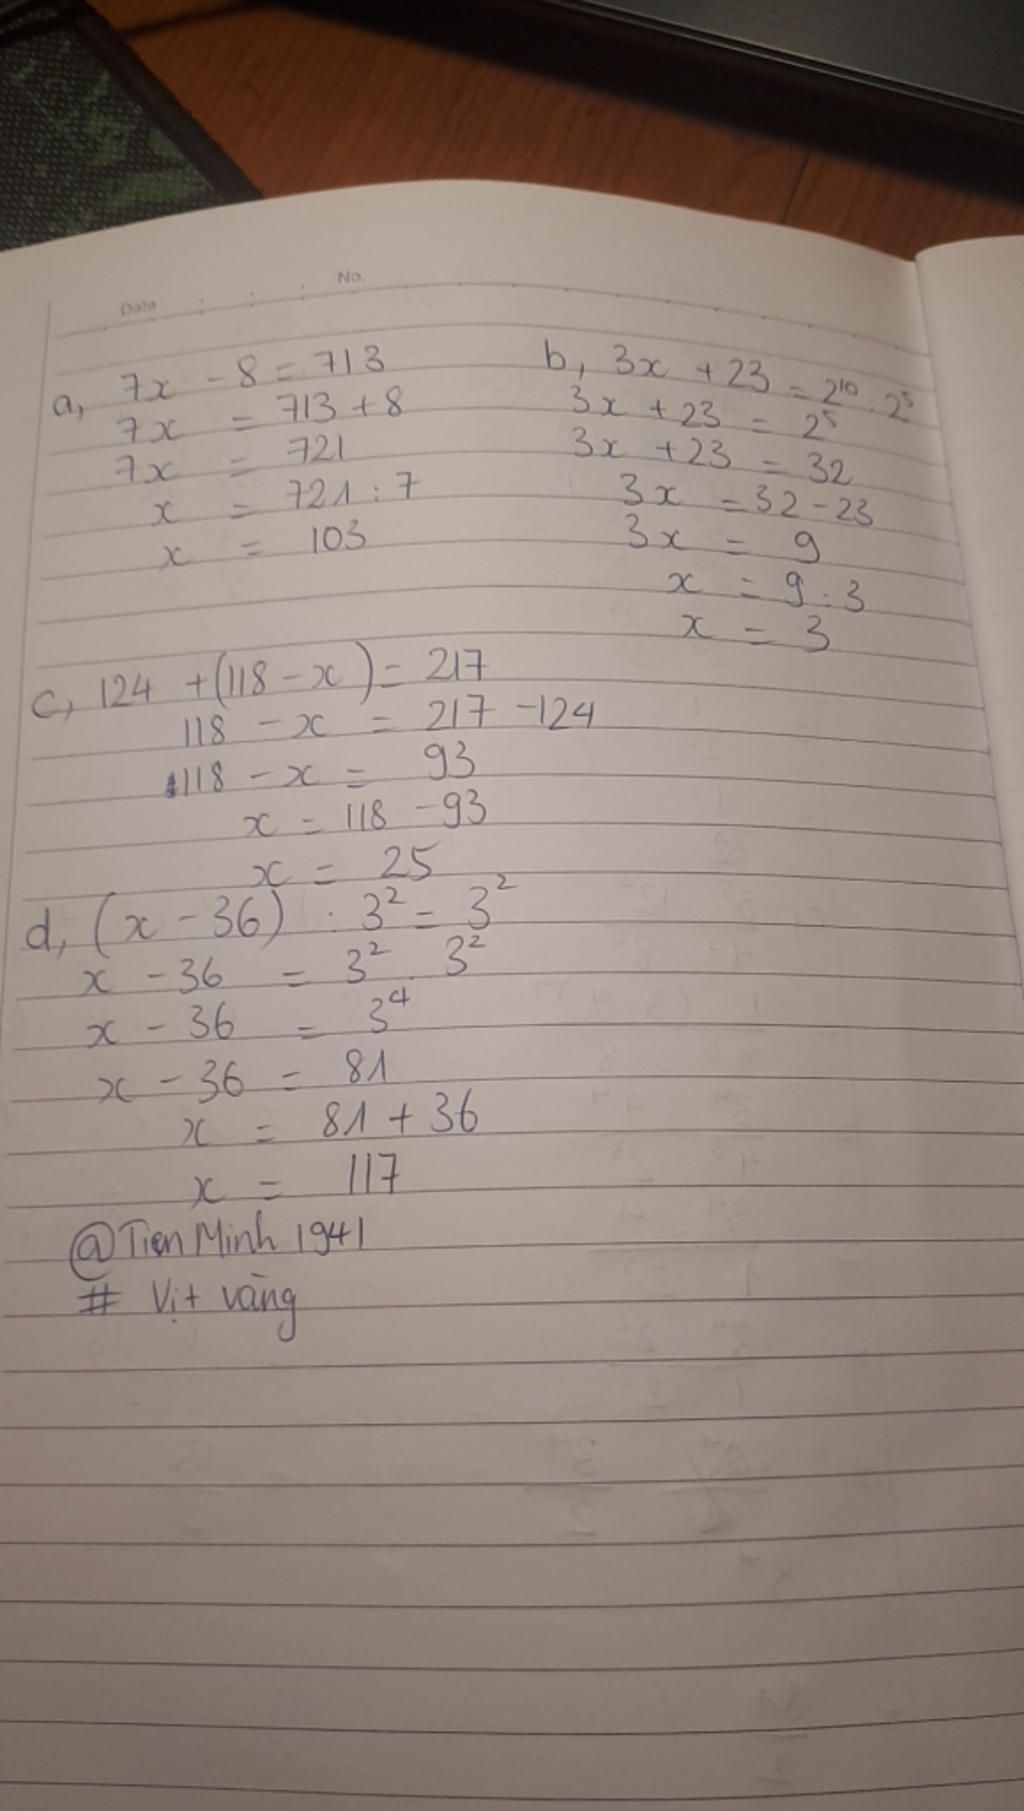 Date No.
a, 7x - 8 = 713
7x = 713 + 8
7x = 721
x = 721 : 7
x = 103
b, 3x + 23 = 2¹⁰ : 2⁵
3x + 23 = 2⁵
3x + 23 = 32
3x = 32 - 23
3x = 9
x = 9 : 3
x = 3
c, 124 + (118 - x) = 217
118 - x = 217 - 124
118 - x = 93
x = 118 - 93
x = 25
d, (x - 36) : 3² = 3²
x - 36 = 3² . 3²
x - 36 = 3⁴
x - 36 = 81
x = 81 + 36
x = 117
@Tien Minh 1941
# Vịt vàng